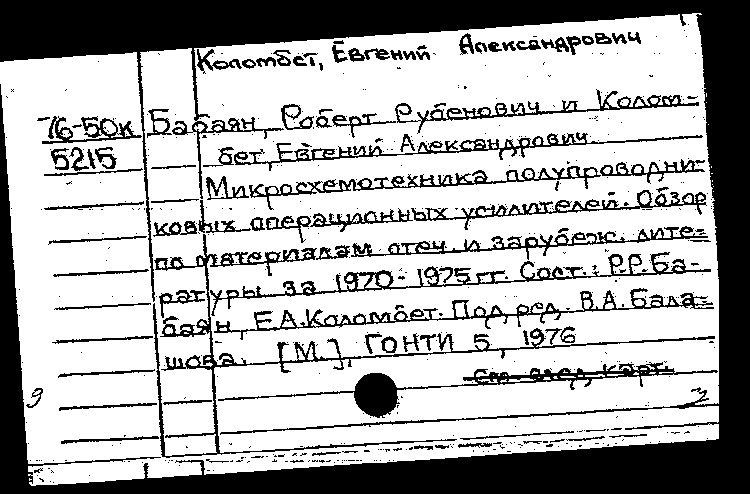 Коломбет, Евгений Александрович
76-50к Бабаян, Роберт Рубенович и Колом=
5215 бет, Евгений Александрович
Микросхемотехника полупроводни=
ковых операционных усилителей. Обзор
по материалам отеч. и зарубеж. лите=
ратуры за 1970-1975 гг. Сост.: Р.Р.Ба-
баян, Е.А.Коломбет. Под ред. В.А.Бала=
шова. [М.], ГОНТИ 5, 1976
См. след. карт.
9
3